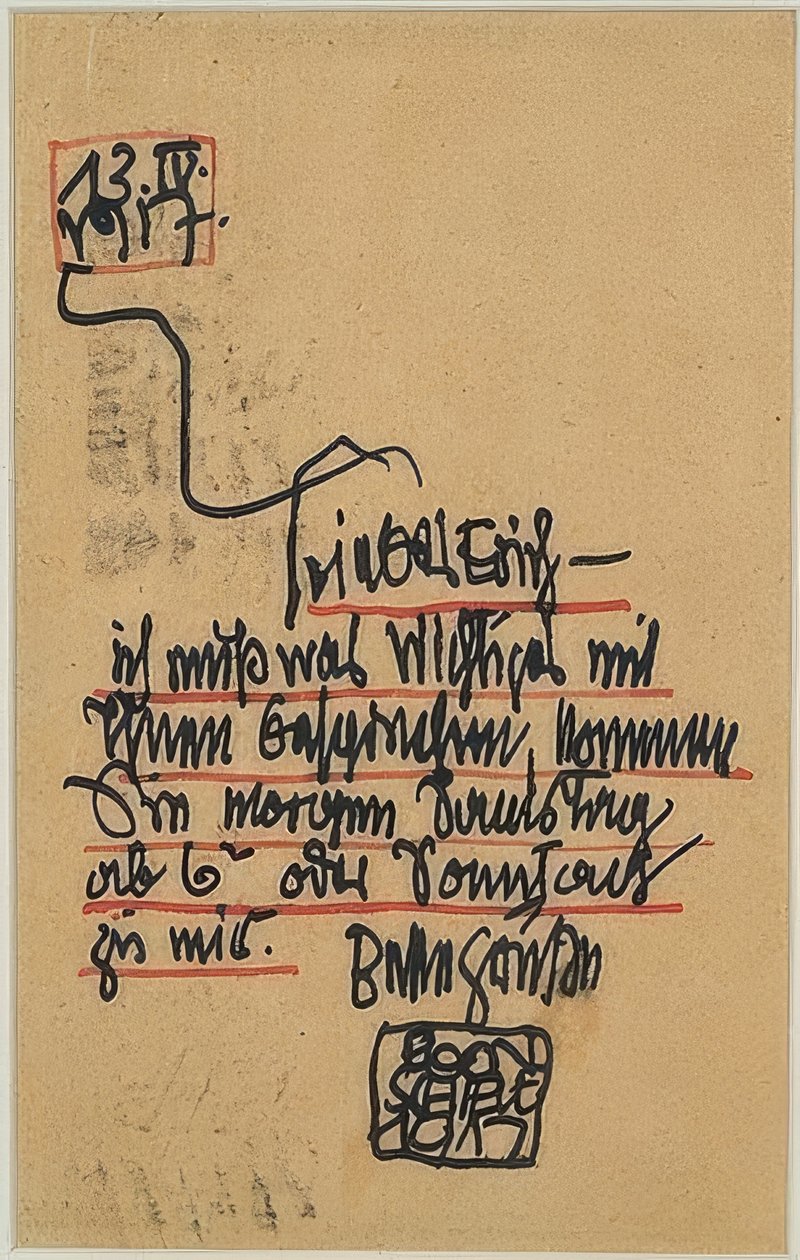 13.IV.
1917.
Lieber Erich —
ich muß was Wichtiges mit
Ihnen besprechen, kommen
Sie morgen Samstag
ab 6ʰ oder Sonntag
zu mir. Beste Grüße
EGON
SCHIELE
1917